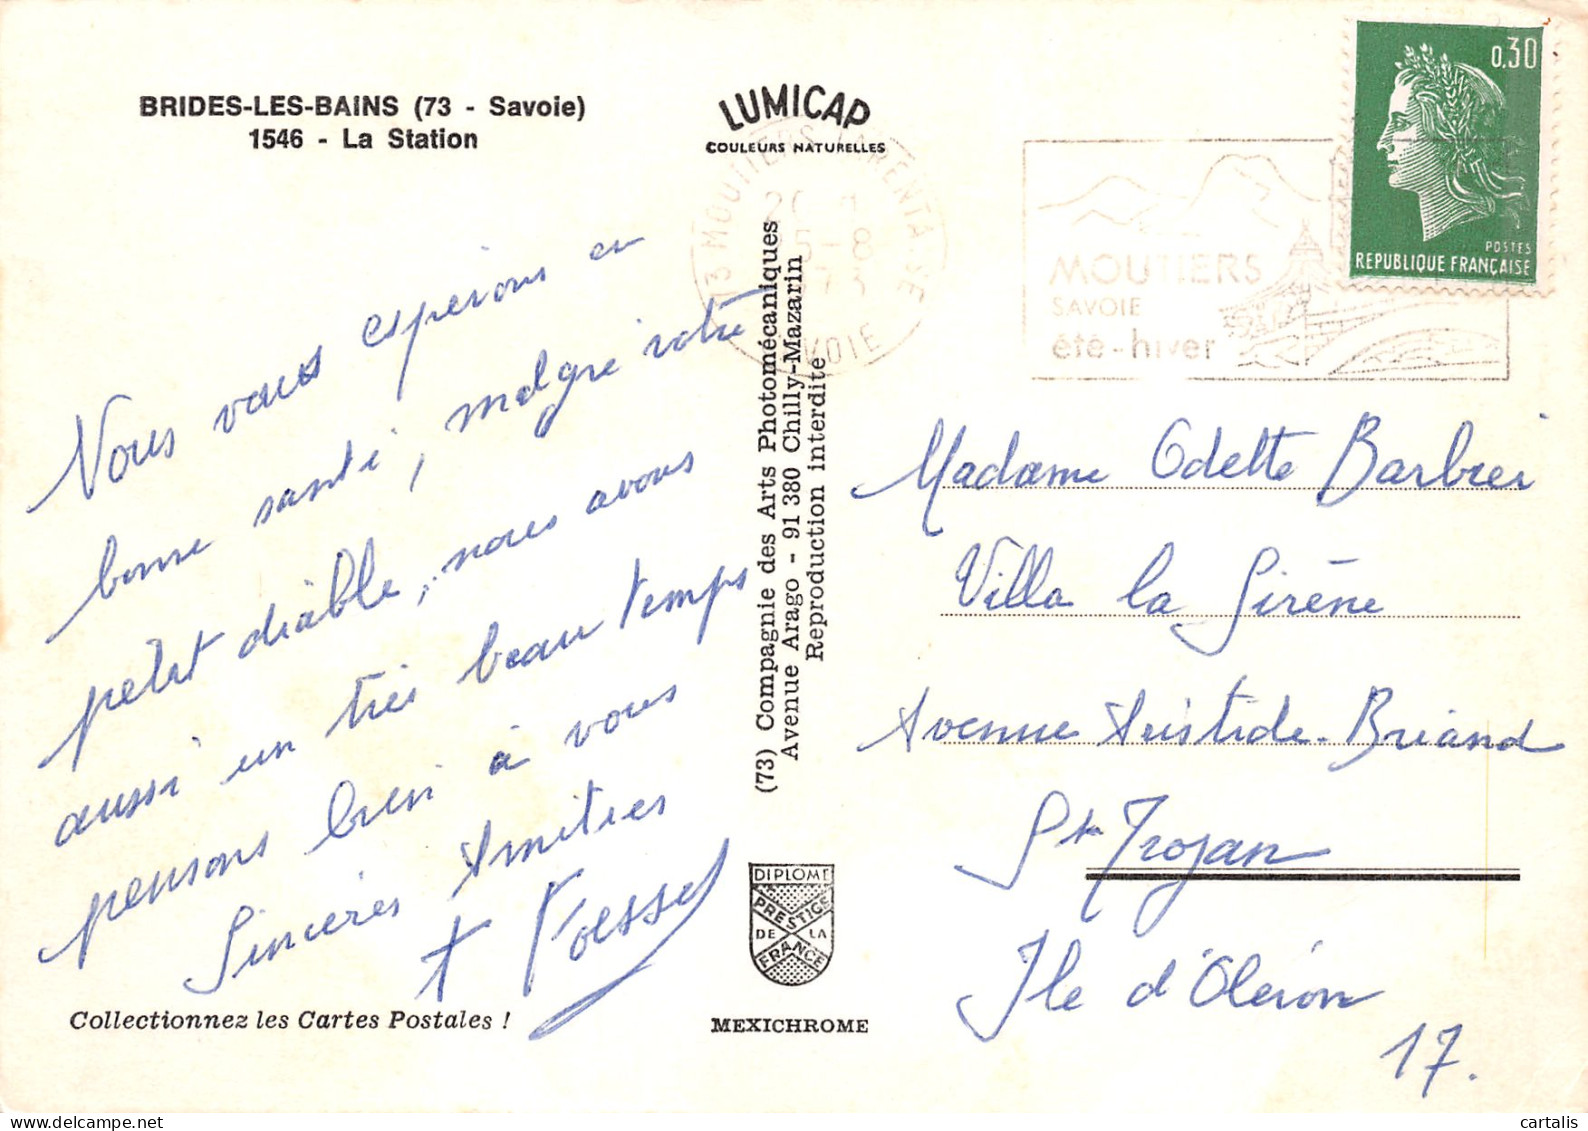 BRIDES-LES-BAINS (73 - Savoie)
1546 - La Station
LUMICAP
COULEURS NATURELLES
73 MOUTIERS TARENTAISE
5-8
73
SAVOIE
MOUTIERS
SAVOIE
été-hiver
0.30
POSTES
REPUBLIQUE FRANÇAISE
Nous vous espérons en
bonne santé, malgré votre
petit diable, nous avons
aussi un très beau temps
pensons bien à vous
Sincères Amitiés
(73) Compagnie des Arts Photomécaniques
Avenue Arago - 91 380 Chilly-Mazarin
Reproduction interdite
Madame Odette Barbier
Villa la Sirène
Avenue Aristide-Briand
St Trojan
Ile d'Oléron
17.
DIPLOME
PRESTIGE
DE LA
FRANCE
MEXICHROME
Collectionnez les Cartes Postales !
cartalis